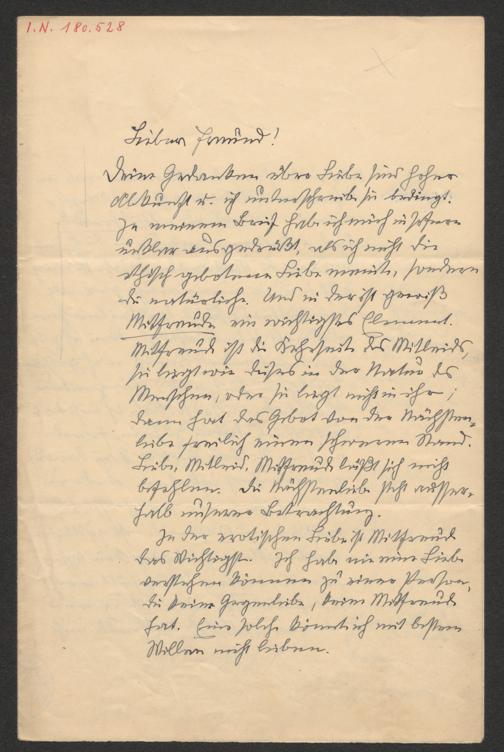 I.N. 180.528
Lieber Freund!
Deine Gedanken über Liebe sind hoher
Abkunft u. ich unterschreibe sie bedingt.
In meinem Brief habe ich mich insofern
unklar ausgedrückt, als ich nicht die
ethisch gebotene Liebe meinte, sondern
die natürliche. Und in der ist gewiß
Mitfreude ein wichtigstes Element.
Mitfreude ist die Kehrseite des Mitleids,
sie liegt wie dieses in der Natur des
Menschen, oder sie liegt nicht in ihr;
dann hat das Gebot von der Nächsten-
liebe freilich einen schweren Stand.
Liebe, Mitleid, Mitfreude läßt sich nicht
befehlen. Die Nächstenliebe steht ausser-
halb unserer Betrachtung.
In der erotischen Liebe ist Mitfreude
das Wichtigste. Ich habe nie eine Liebe
verstehen können zu einer Person,
die keine Gegenliebe, keine Mitfreude
hat. Eine solche könnte ich mit bestem
Willen nicht lieben.